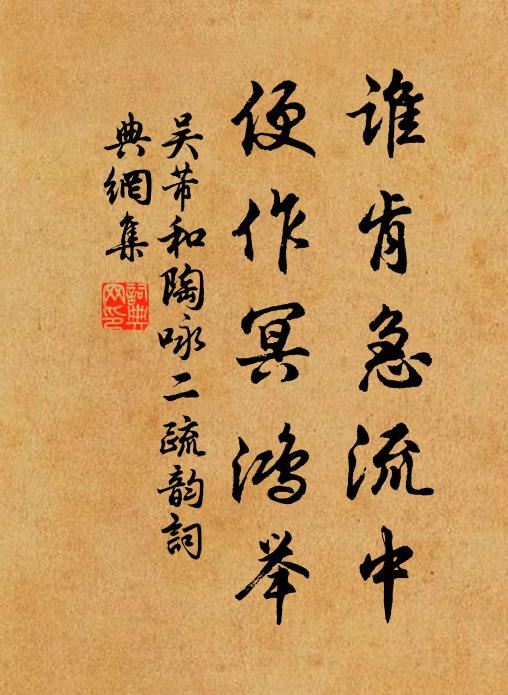 谁肯急流中
便作冥鸿举
吴芾和陶咏二疏韵詞
典網集
詞典
网印